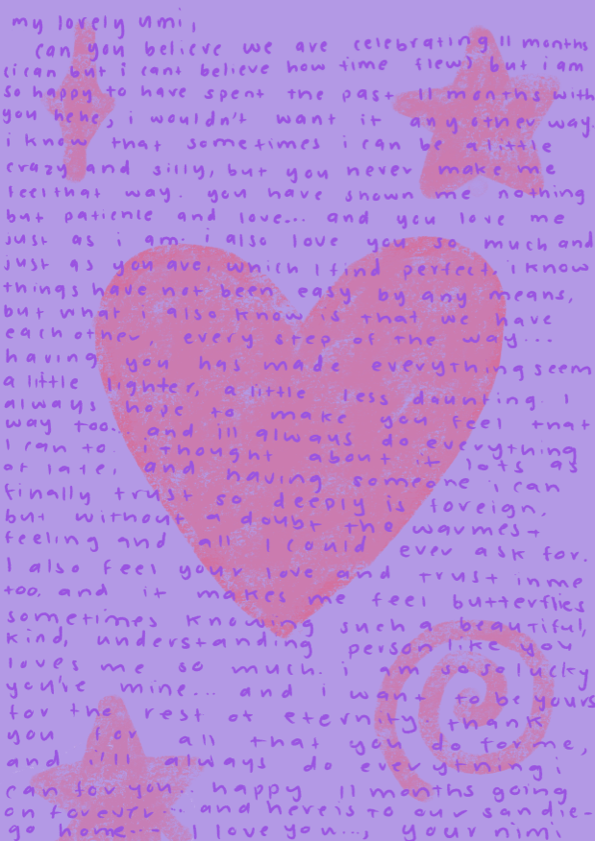 my lovely umi,
can you believe we are celebrating 11 months
(i can but i cant believe how time flew) but i am
so happy to have spent the past 11 months with
you hehe, i wouldn't want it any other way.
i know that sometimes i can be a little
crazy and silly, but you never make me
feel that way. you have shown me nothing
but patience and love... and you love me
just as i am. i also love you so much and
just as you are, which I find perfect. i know
things have not been easy by any means,
but what i also know is that we have
each other, every step of the way...
having you has made everything seem
a little lighter, a little less daunting. I
always hope to make you feel that
way too... and ill always do everything
I can to. i thought about it lots as
of late, and having someone i can
finally trust so deeply is foreign.
but without a doubt the warmest
feeling and all I could ever ask for.
I also feel your love and trust in me
too. and it makes me feel butterflies
sometimes knowing such a beautiful,
kind, understanding person like you
loves me so much. i am so so lucky
you're mine... and i want to be yours
for the rest of eternity. thank
you for all that you do for me,
and i'll always do everything i
can for you.. happy 11 months going
on forever... and here is to our sandie-
go home... I love you..., your nimi